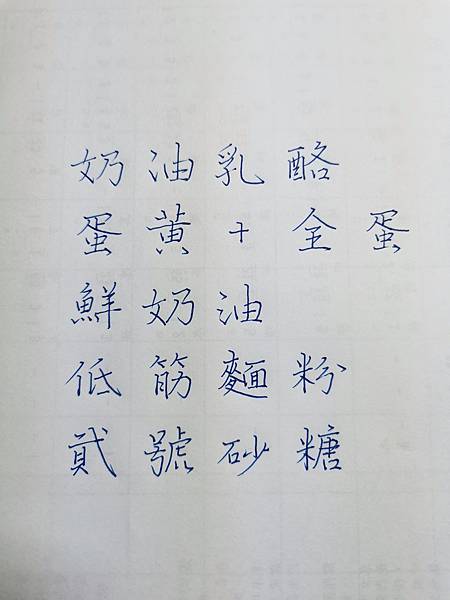 奶油乳酪
蛋黃+全蛋
鮮奶油
低筋麵粉
貳號砂糖